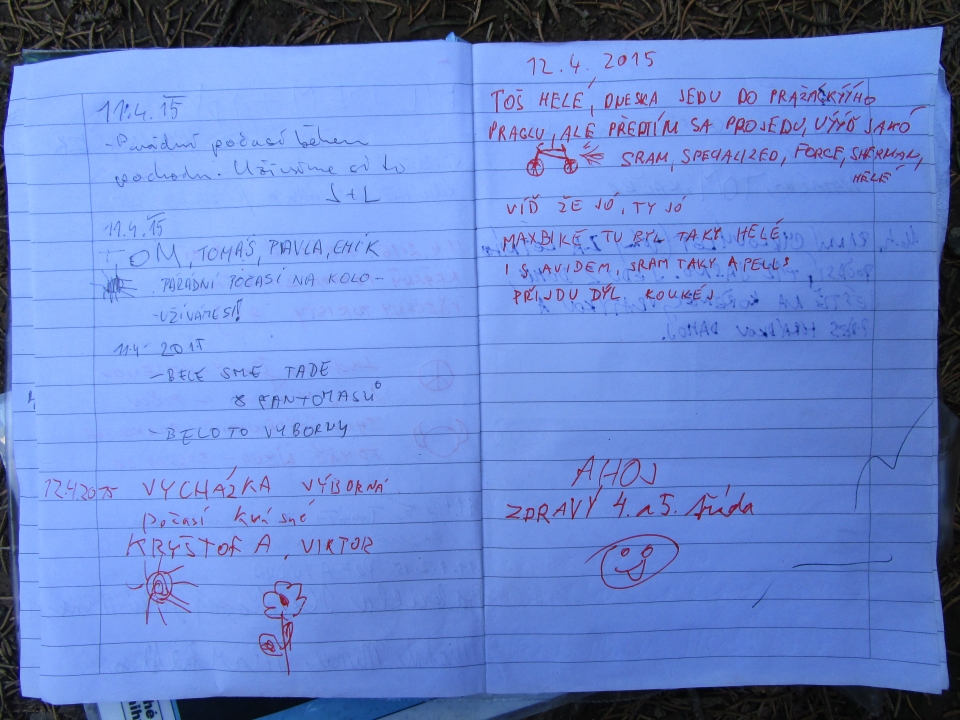 11.4.15
- Parádní počasí během
pochodu. Užíváme si to
J+L
11.4.15
TOM, TOMÁŠ, PAVLA, EMÍK
PARÁDNÍ POČASÍ NA KOLO -
- UŽÍVÁME SI!
11.4. 2015
- BELE SME TADE
8 FANTOMASŮ
- BELO TO VÝBORNY
12.4.2015 VYCHÁZKA VÝBORNÁ
počasí krásné
KRYŠTOF A, VIKTOR
12.4. 2015
TOŠ HELÉ, DNESKA JEDU DO PRAŽÁCKÝHO
PRAGLU, ALE PŘEDTÍM SA PROJEDU, VÝÝĎ JAKÓ
SRAM, SPECIALIZED, FORCE, SHERMAN,
HÉLÉ
VIĎ ŽE JÓ, TY JÓ
MAXBIKE TU BYL TAKY, HÉLÉ
I S AVIDEM, SRAM TAKY A PELLS
PŘIJDU DÝL KOUKEJ
AHOJ
ZDRAVÝ 4. a 5. třída